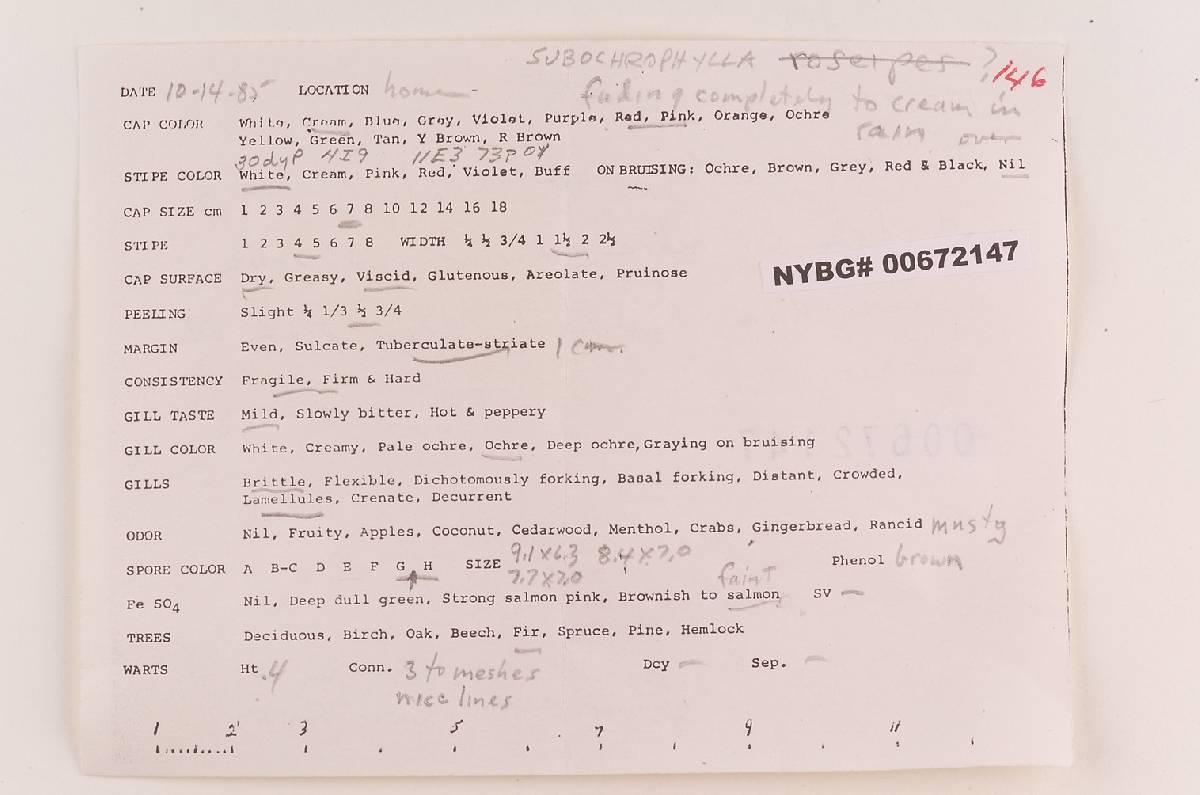 SUBOCHROPHYLLA roseipes ? 146
DATE 10-14-85 LOCATION home
fading completely to cream in
rain over
CAP COLOR White, Cream, Blue, Grey, Violet, Purple, Red, Pink, Orange, Ochre
Yellow, Green, Tan, Y Brown, R Brown
30dyP 4I9 11E3 73P OY
STIPE COLOR White, Cream, Pink, Red, Violet, Buff ON BRUISING: Ochre, Brown, Grey, Red & Black, Nil
CAP SIZE cm 1 2 3 4 5 6 7 8 10 12 14 16 18
STIPE 1 2 3 4 5 6 7 8 WIDTH ¼ ½ 3/4 1 1½ 2 2½
NYBG# 00672147
CAP SURFACE Dry, Greasy, Viscid, Glutenous, Areolate, Pruinose
PEELING Slight ¼ 1/3 ½ 3/4
MARGIN Even, Sulcate, Tuberculate-striate 1 cm.
CONSISTENCY Fragile, Firm & Hard
GILL TASTE Mild, Slowly bitter, Hot & peppery
GILL COLOR White, Creamy, Pale ochre, Ochre, Deep ochre, Graying on bruising
GILLS Brittle, Flexible, Dichotomously forking, Basal forking, Distant, Crowded,
Lamellules, Crenate, Decurrent
ODOR Nil, Fruity, Apples, Coconut, Cedarwood, Menthol, Crabs, Gingerbread, Rancid musty
SPORE COLOR A B-C D E F G H SIZE 9.1 x 6.3 8.4 x 7.0 Phenol brown
7.7 x 7.0 faint
Fe SO4 Nil, Deep dull green, Strong salmon pink, Brownish to salmon SV —
TREES Deciduous, Birch, Oak, Beech, Fir, Spruce, Pine, Hemlock
WARTS Ht .4 Conn. 3 to meshes Dcy — Sep. —
nice lines
1 2 3 5 7 9 11